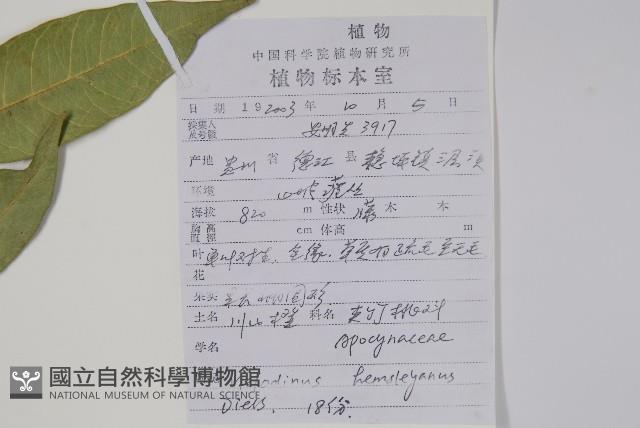 植物
中国科学院植物研究所
植物标本室
日 期 19 2003 年 10 月 5 日
採集人
及号数 安明先 3917
产地 贵州 省 德江 县 稳坪镇
环境 灌丛
海拔 820 m 性状 藤 木 本
胸高
直径 cm 体高 m
叶 单叶对生、全缘、
花
果实
土名 科名 夹竹桃科
学名 Apocynaceae
hemsleyanus
Diels. 18份.
國立自然科學博物館
NATIONAL MUSEUM OF NATURAL SCIENCE